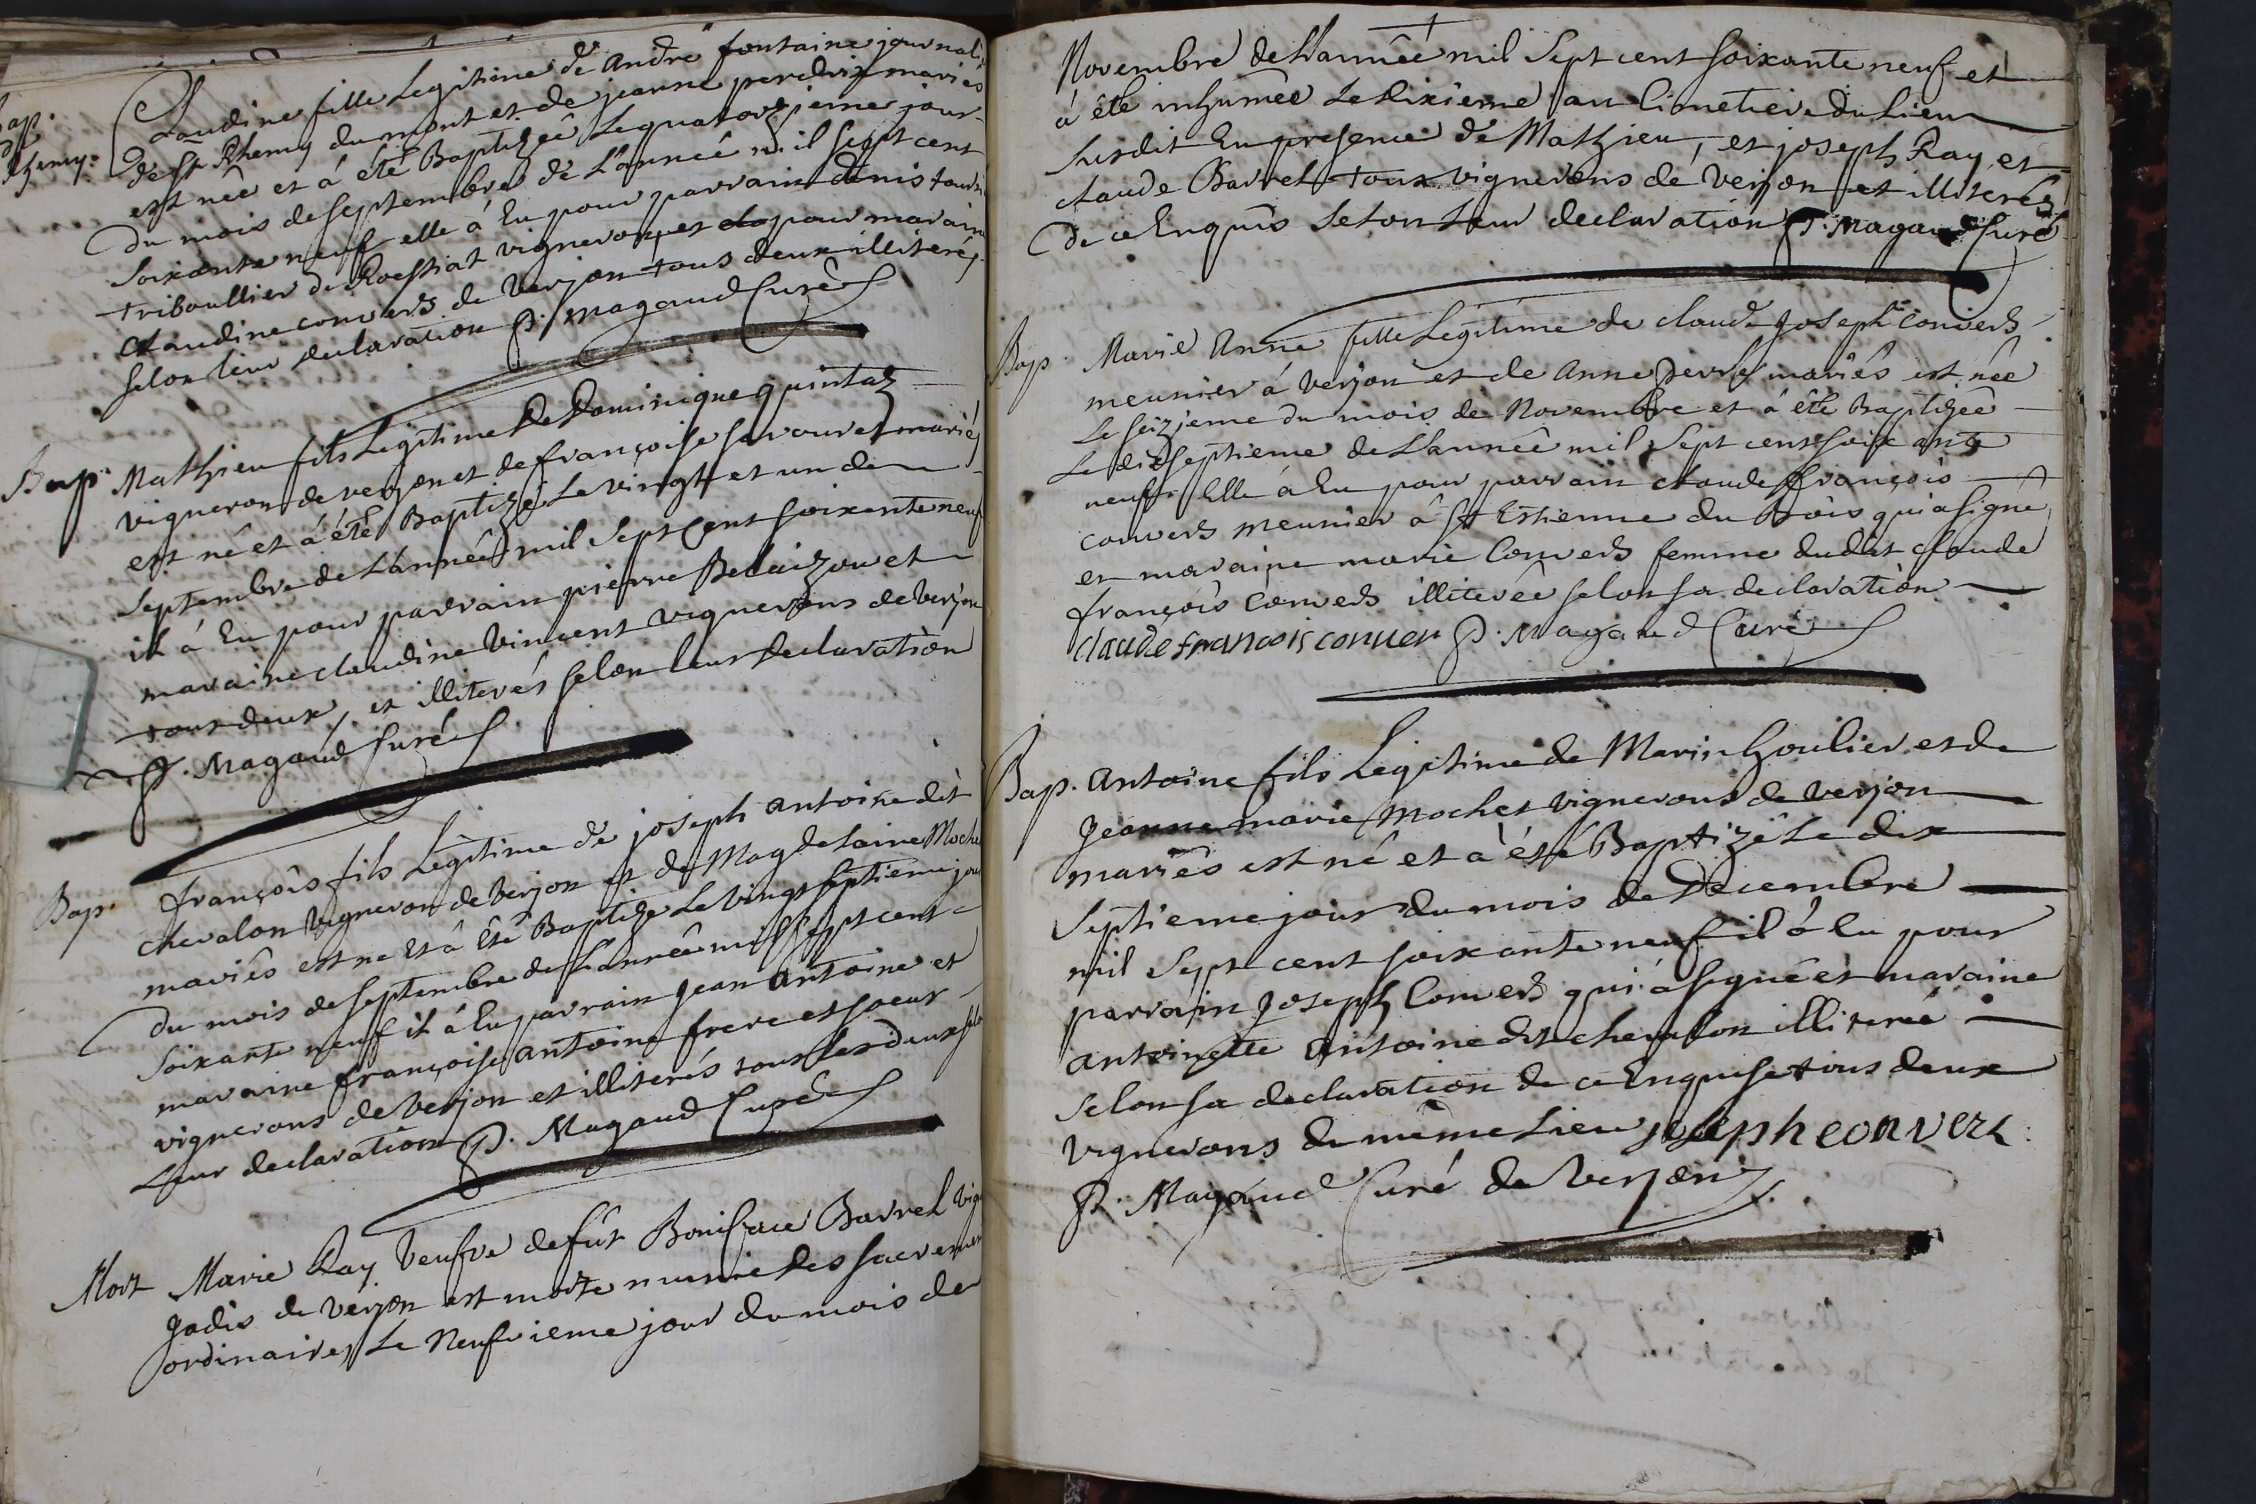 Bap.
Rhemy.
Claudine fille Legitime de andré fontaine journali
de st Rhemy du mont et de jeanne perdrix mariés
est née et à été Baptizéé Le quatorzieme jour
du mois de septembre de L'année mil sept cent
soixante neuf elle à Eu pour parrain denis
triboullier de Roessiat vigneron et pour maraine
claudine convers de verjon tous deux illiterés
selon leur declaration P. Magaud Curé
Bap. Mathieu fils Legitime de Dominique quintaz
vigneron de verjon et de françoise savouret mariés
est né et à été Baptizé Le vingt et un de
septembre de L'année mil sept cent soixante neuf
il à Eu pour parrain pierre Beluizon et
maraine claudine vincent vignerons de verjon
tous deux, et illiterés selon leur declaration
P. Magaud Curé
Bap. françois fils Legitime de joseph antoine dit
chevalon vigneron de verjon et de Magdelaine Moche
mariés est né et à Eté Baptizé Le vingt septieme jou
du mois de septembre de L'année mil sept cent
soixante neuf il à Eu parrain jean antoine et
maraine françoise antoine frere et soeur
vignerons de verjon et illiterés tous les deux selo
Leur declaration P. Magaud Curé
Mort Marie Ray veufve de fût Boniface Barrel vig
jadis de verjon est morte munie des sacremen
ordinaires Le Neufvieme jour du mois de
Novembre de L'année mil sept cent soixante neuf et
à été inhumée Le dixieme au Cimetiere du Lieu
susdit En presence de Mathieu, et joseph Ray et
claude Barrel tous vignerons de verjon et illiterés
de ce Enquis selon Leur declaration P. Magaud Curé
Bap. Marie Anne fille Legitime de claude joseph Convers
meunier à verjon et de Anne mariés est née
Le seizieme du mois de Novembre et à été Baptizéé
Le dixseptieme de L'année mil sept cent soixante
neuf. Elle à Eu pour parrain claude françois
convers meunier à st Estienne du Bois qui a signé
et maraine marie Convers femme dudit claude
françois Convers illiterée selon sa declaration
claude francois conuer P. Magaud Curé
Bap. Antoine fils Legitime de Marin houlier et de
jeanne marie Mochet vignerons de verjon
mariés est né et à été Baptizé Le dix
septieme jour du mois de Decembre
mil sept cent soixante neuf il à Eu pour
parrain joseph Convers qui à signé et maraine
antoinette antoine dit chevalon illiterée
selon sa declaration de ce Enquise tous deux
vignerons du même Lieu joseph convers
P. Magaud Curé de verjon